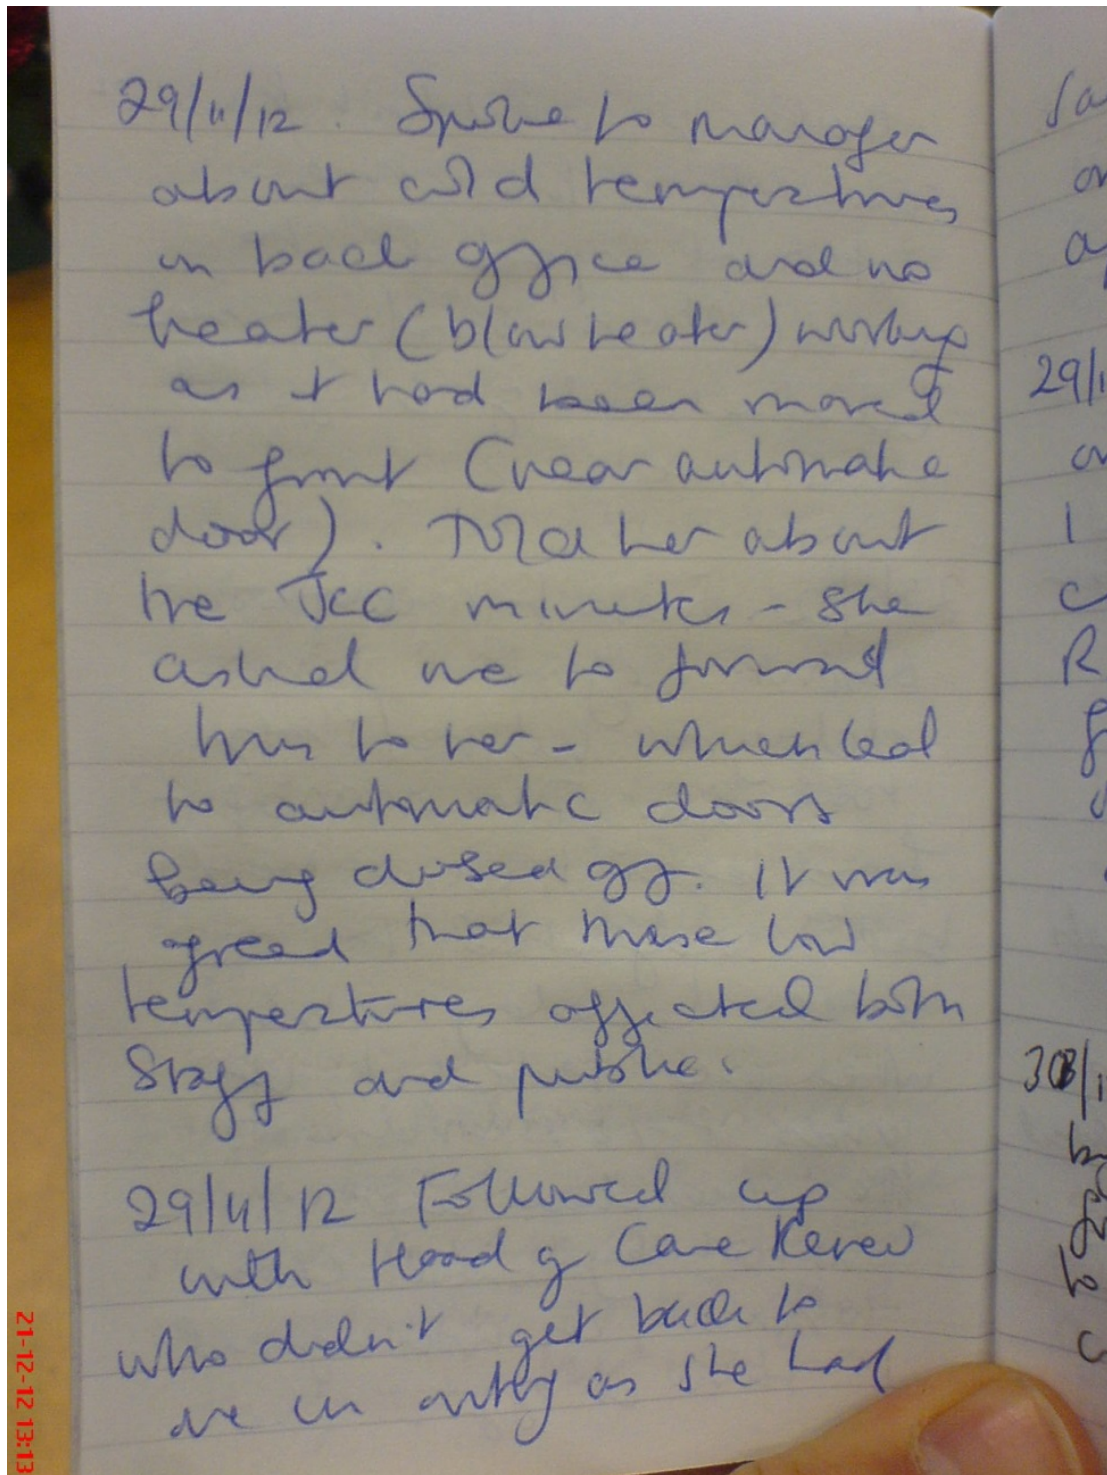 29/11/12. Spoke to manager
about cold temperatures
in back office and no
heater (blow heater) working
as it had been moved
to front (near automatic
door). Told her about
the JCC minutes - she
asked me to forward
this to her - which lead
to automatic doors
being closed off. It was
agreed that these low
temperatures affected both
staff and public.
29/11/12 Followed up
with Head of Care
who didn't get back to
me in writing as she had
21-12-12 13:13
29/1
R